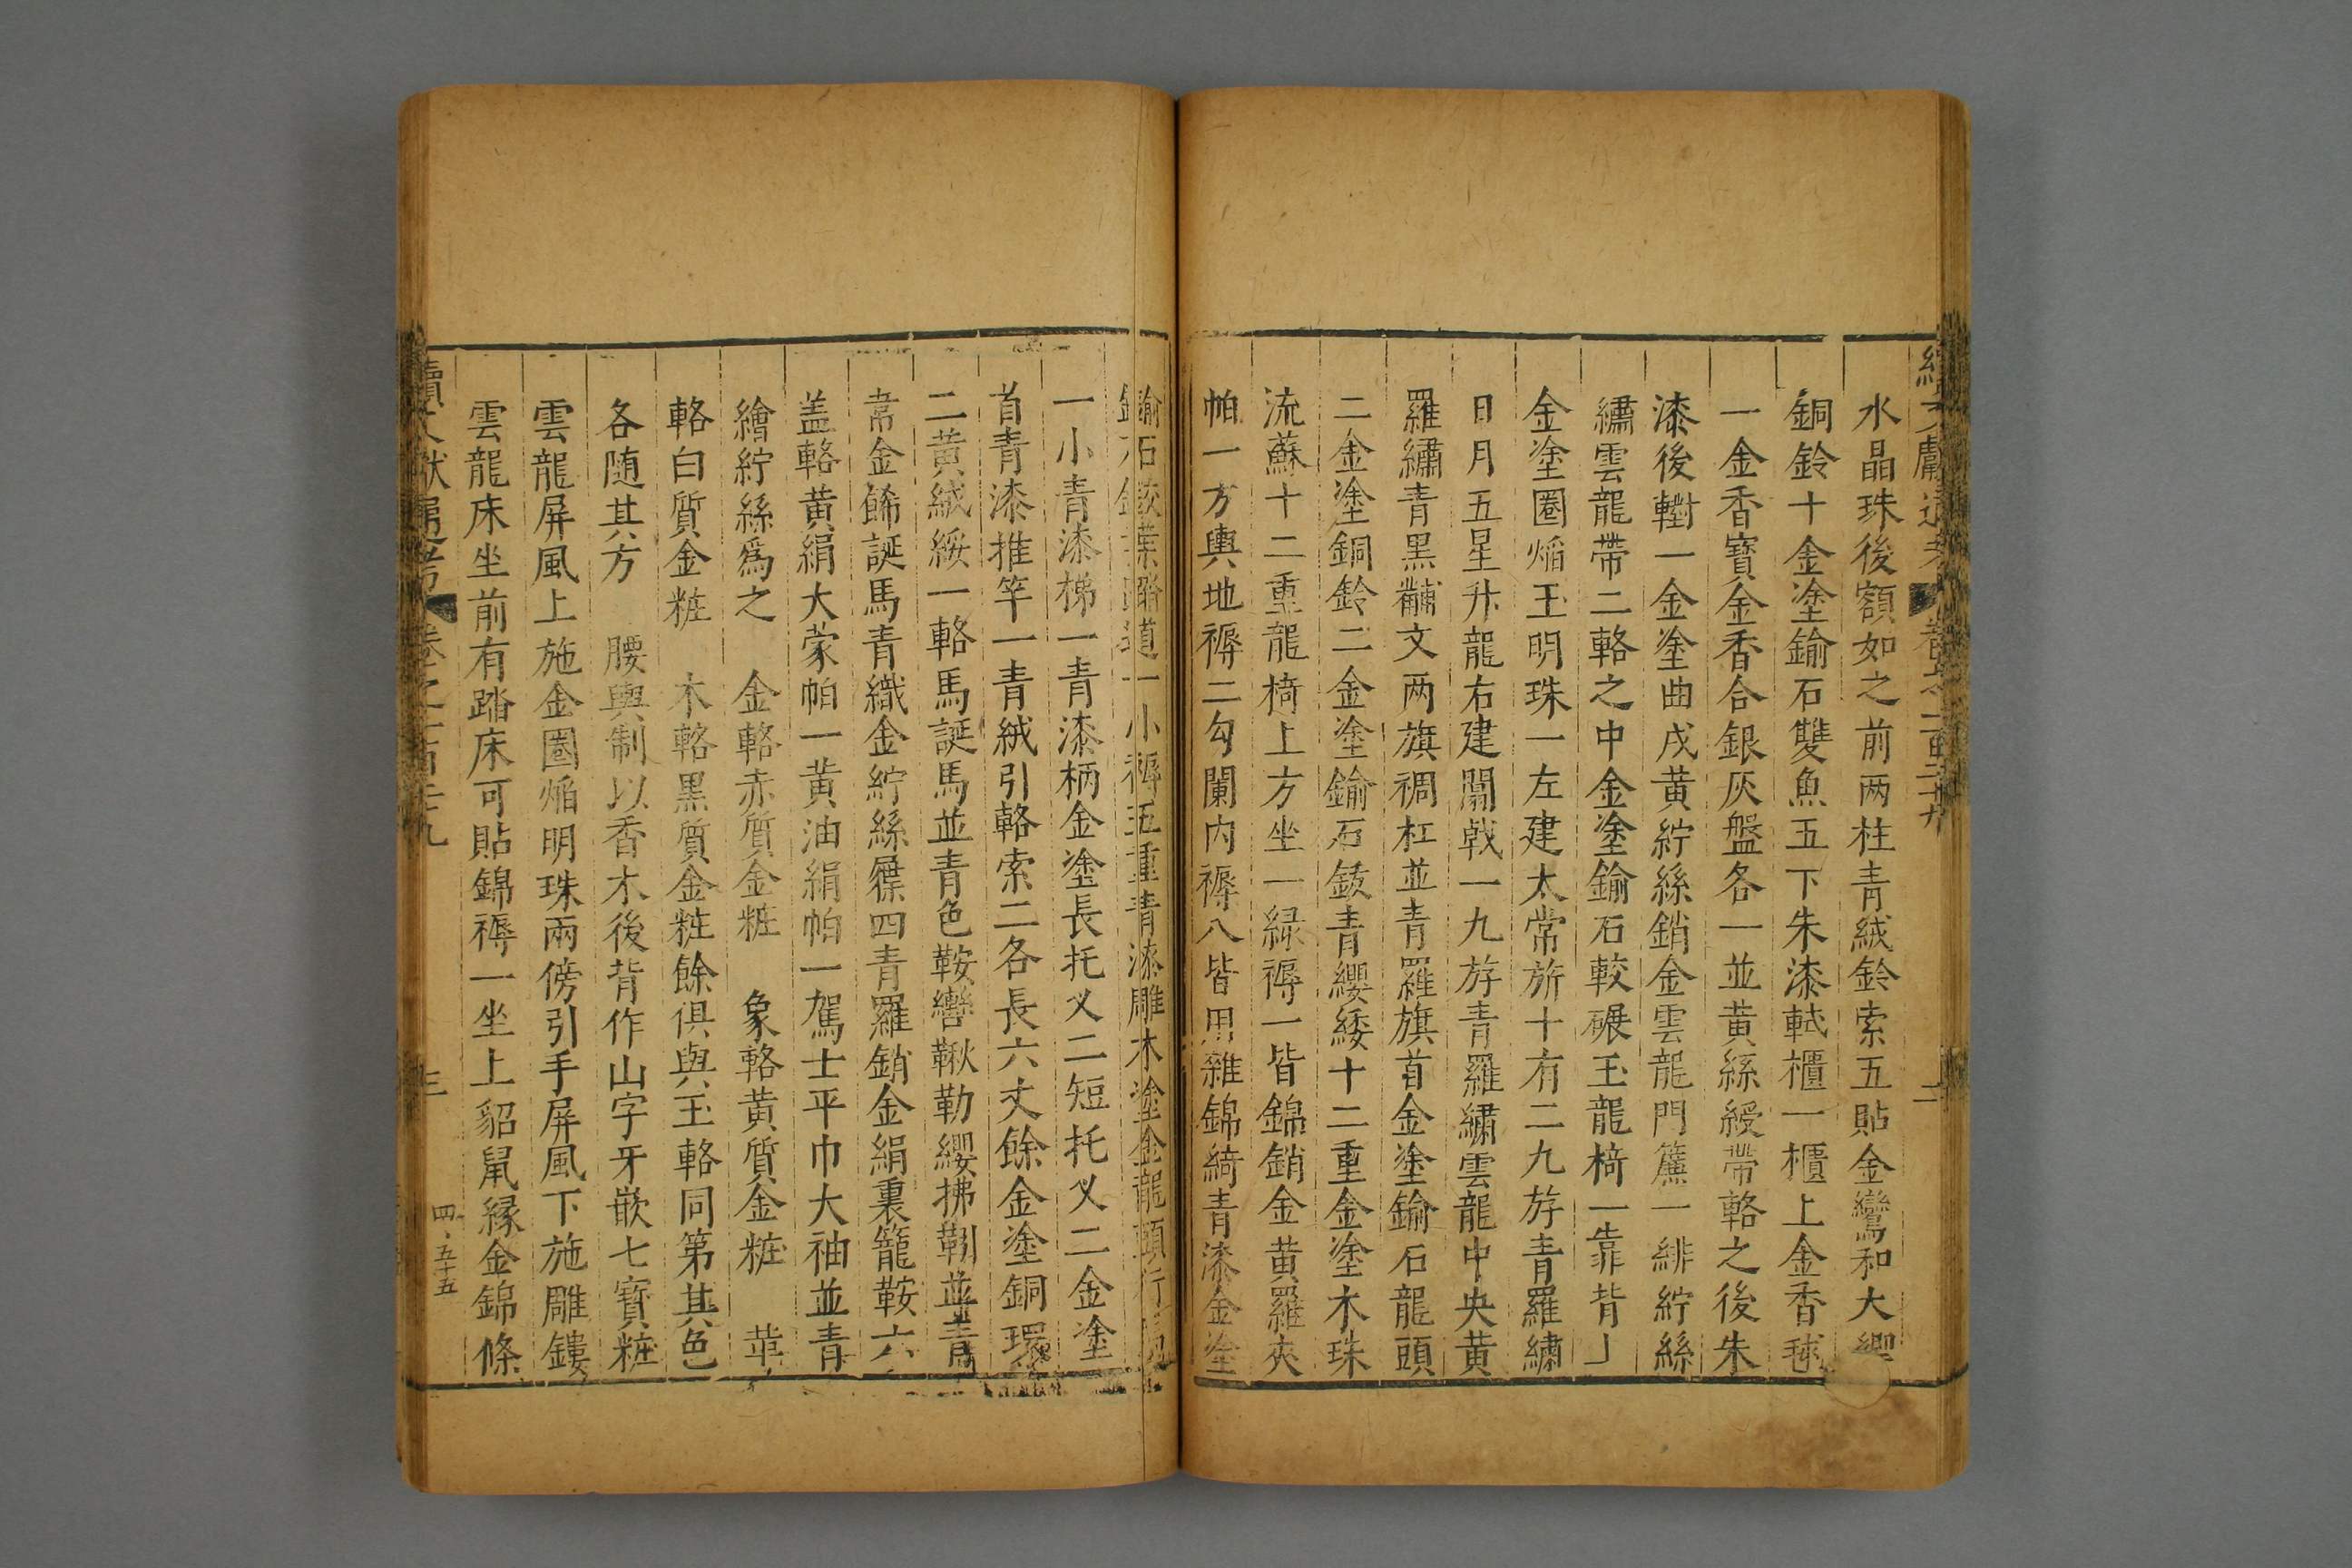 水晶珠後額如之前两柱青絨鈴索五貼金鸞和大
銅鈴十金塗鍮石雙魚五下朱漆軾櫃一櫃上金香毬
一金香寳金香合銀灰盤各一並黄絲綬帶輅之後朱
漆後轛一金塗曲戌黄紵絲銷金雲龍門簾一緋紵絲
繡雲龍帶二輅之中金塗鍮石較碾玉龍椅一靠背上
金塗圈焰玉明珠一左建太常旂十有二九斿青羅繡
日月五星升龍右建闟戟一九斿青羅繡雲龍中央黄
羅繡青黑黼文两旗裯杠並青羅旗首金塗鍮石龍頭
二金塗銅鈴二金塗鍮石鈸青纓緌十二重金塗木珠
流蘇十二重龍椅上方坐一緑褥一皆錦銷金黄羅夾
帕一方輿地褥二勾闌内褥八皆用雜錦綺青漆金塗
鍮石鉸葉踏道一小褥五重青漆雕木塗金龍頭行馬
一小青漆梯一青漆柄金塗長托义二短托义二金塗
首青漆推竿一青絨引輅索二各長六丈餘金塗銅環
二黄絨綏一輅馬誕馬並青色鞍轡鞦勒纓拂靷並青
常金餙誕馬青織金紵絲屧四青羅銷金絹裏籠鞍六
盖輅黄絹大蒙帕一黄油絹帕一駕士平巾大袖並青
繪紵絲爲之 金輅赤質金粧 象輅黄質金粧 革
輅白質金粧 木輅黑質金粧餘俱與玉輅同第其色
各随其方 腰輿制以香木後背作山字牙嵌七寳粧
雲龍屏風上施金圈焰明珠兩傍引手屏風下施雕鏤
雲龍床坐前有踏床可貼錦褥一坐上貂鼠緣金錦條
續文獻通考 卷之一百二十九
三
四五十五